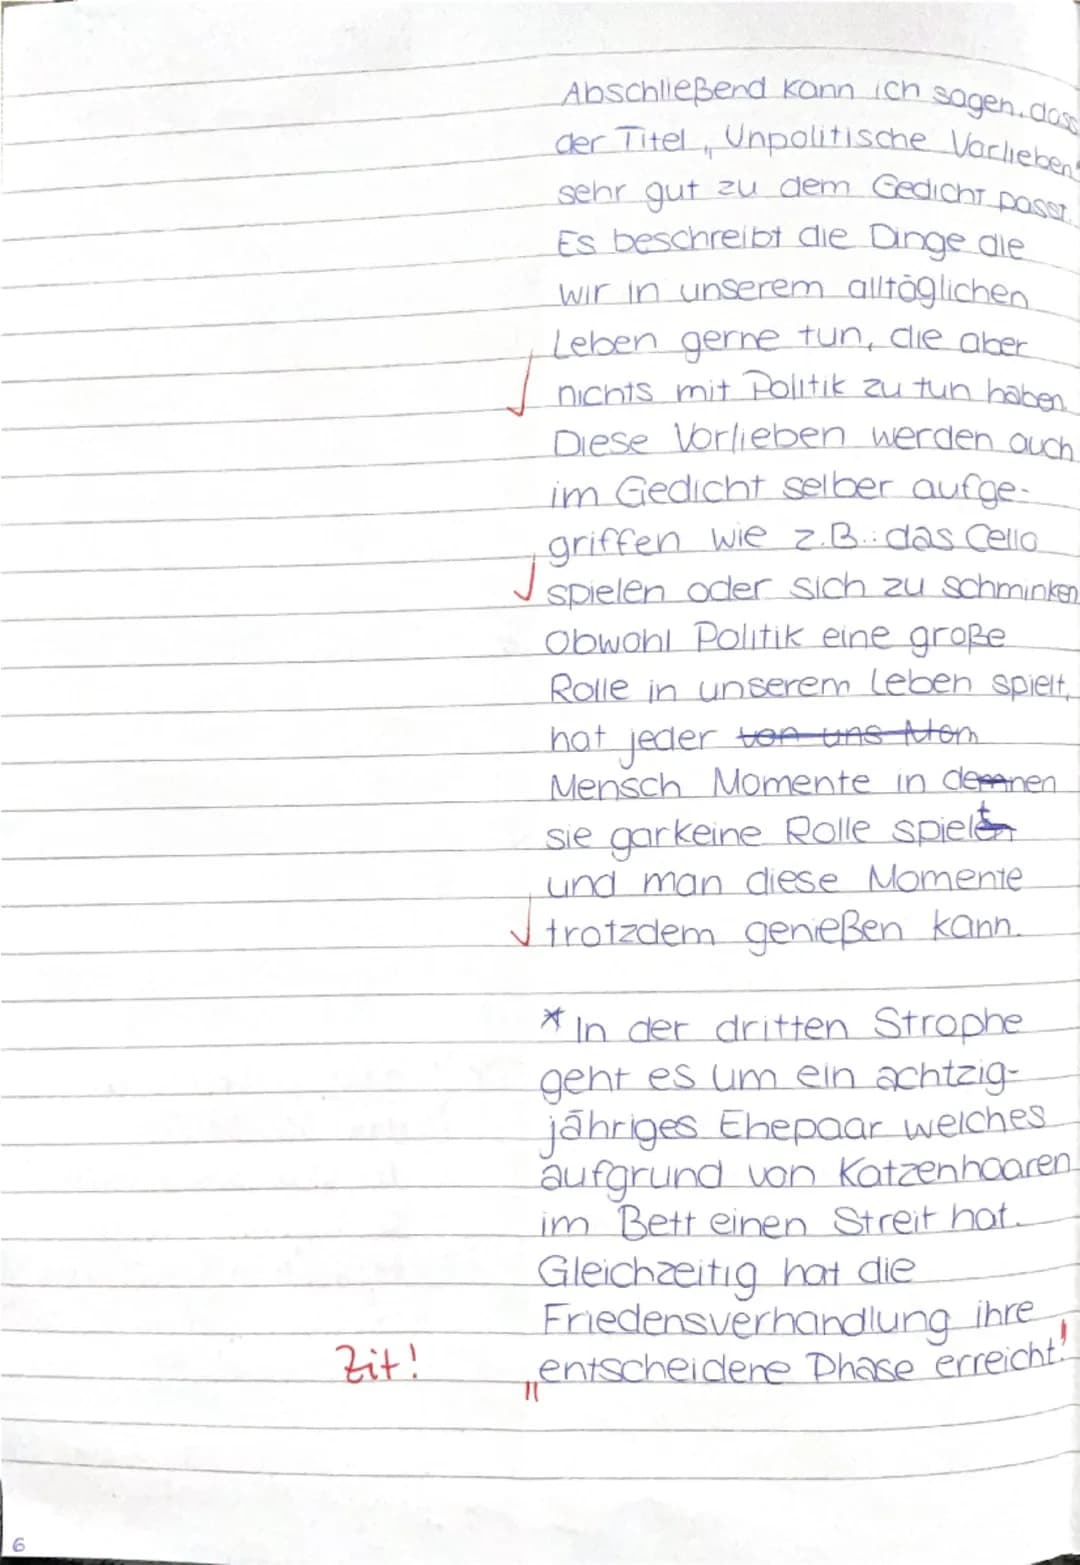 Abschließend kann ich sagen, dass
der Titel „Unpolitische Vorlieben"
sehr gut zu dem Gedicht passt.
Es beschreibt die Dinge die
wir in unserem alltäglichen
Leben gerne tun, die aber
nichts mit Politik zu tun haben.
Diese Vorlieben werden auch
im Gedicht selber aufge-
griffen wie z.B.: das Cello
spielen oder sich zu schminken
Obwohl Politik eine große
Rolle in unserem Leben spielt,
hat jeder von uns Mom
Mensch Momente in denen
sie garkeine Rolle spielt
und man diese Momente
trotzdem genießen kann.
* In der dritten Strophe
geht es um ein achtzig-
jähriges Ehepaar welches
aufgrund von Katzenhaaren
im Bett einen Streit hat.
Gleichzeitig hat die
Friedensverhandlung ihre
Zit! „entscheidene Phase erreicht."
6